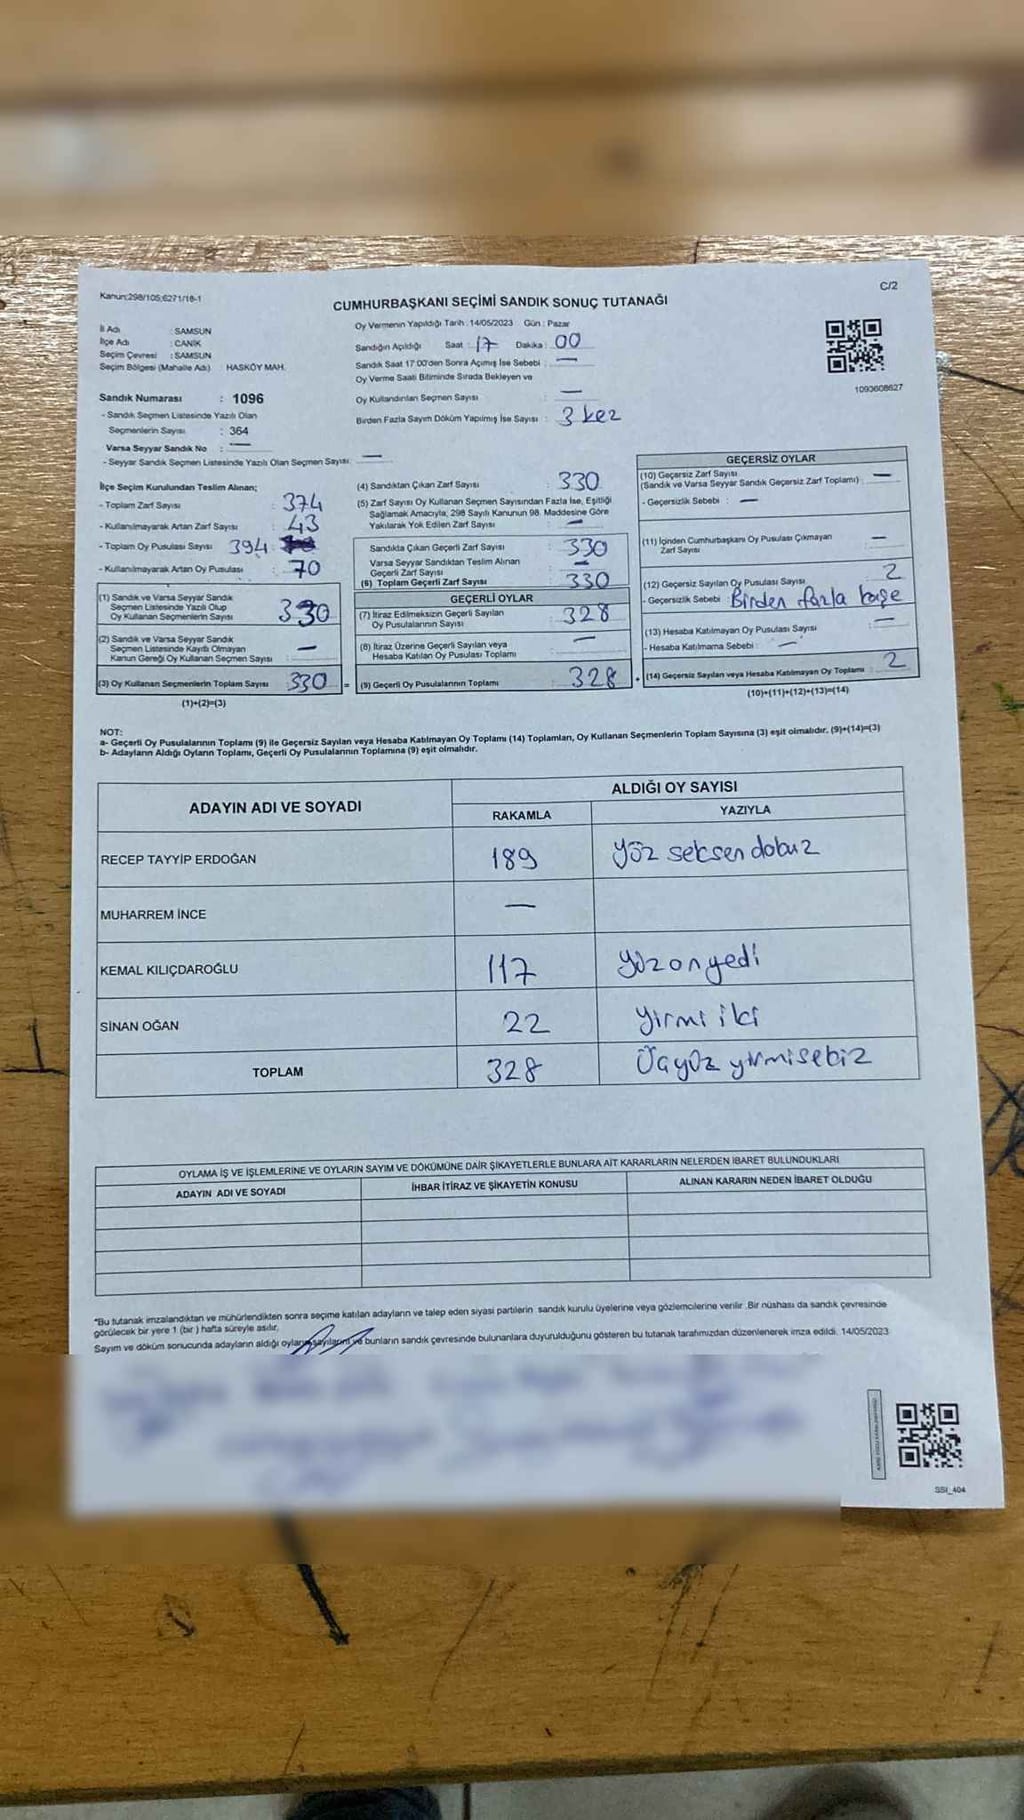 Kanun:298/105;6271/18-1
C/2
CUMHURBAŞKANI SEÇİMİ SANDIK SONUÇ TUTANAĞI
İl Adı : SAMSUN
İlçe Adı : CANİK
Seçim Çevresi : SAMSUN
Seçim Bölgesi (Mahalle Adı) HASKÖY MAH.
Sandık Numarası : 1096
- Sandık Seçmen Listesinde Yazılı Olan
Seçmenlerin Sayısı : 364
Varsa Seyyar Sandık No : —
- Seyyar Sandık Seçmen Listesinde Yazılı Olan Seçmen Sayısı: —
Oy Vermenin Yapıldığı Tarih : 14/05/2023 Gün : Pazar
Sandığın Açıldığı Saat : 17 Dakika : 00
Sandık Saat 17:00'den Sonra Açımış İse Sebebi : —
Oy Verme Saati Bitiminde Sırada Bekleyen ve
Oy Kullandırılan Seçmen Sayısı : —
Birden Fazla Sayım Döküm Yapılmış İse Sayısı : 3 kez
1093608627
İlçe Seçim Kurulundan Teslim Alınan;
- Toplam Zarf Sayısı : 374
- Kullanılmayarak Artan Zarf Sayısı : 43
- Toplam Oy Pusulası Sayısı 394
- Kullanılmayarak Artan Oy Pusulası : 70
(1) Sandık ve Varsa Seyyar Sandık
Seçmen Listesinde Yazılı Olup
Oy Kullanan Seçmenlerin Sayısı 330
(2) Sandık ve Varsa Seyyar Sandık
Seçmen Listesinde Kayıtlı Olmayan
Kanun Gereği Oy Kullanan Seçmen Sayısı —
(3) Oy Kullanan Seçmenlerin Toplam Sayısı 330 =
(1)+(2)=(3)
(4) Sandıktan Çıkan Zarf Sayısı : 330
(5) Zarf Sayısı Oy Kullanan Seçmen Sayısından Fazla İse, Eşitliği
Sağlamak Amacıyla, 298 Sayılı Kanunun 98. Maddesine Göre
Yakılarak Yok Edilen Zarf Sayısı : —
Sandıkta Çıkan Geçerli Zarf Sayısı 330
Varsa Seyyar Sandıktan Teslim Alınan
Geçerli Zarf Sayısı —
(6) Toplam Geçerli Zarf Sayısı 330
GEÇERLİ OYLAR
(7) İtiraz Edilmeksizin Geçerli Sayılan
Oy Pusulalarının Sayısı 328
(8) İtiraz Üzerine Geçerli Sayılan veya
Hesaba Katılan Oy Pusulası Toplamı —
(9) Geçerli Oy Pusulalarının Toplamı 328 +
GEÇERSİZ OYLAR
(10) Geçersiz Zarf Sayısı
(Sandık ve Varsa Seyyar Sandık Geçersiz Zarf Toplamı) —
- Geçersizlik Sebebi : —
(11) İçinden Cumhurbaşkanı Oy Pusulası Çıkmayan
Zarf Sayısı —
(12) Geçersiz Sayılan Oy Pusulası Sayısı 2
- Geçersizlik Sebebi : Birden fazla kaşe
(13) Hesaba Katılmayan Oy Pusulası Sayısı —
- Hesaba Katılmama Sebebi : —
(14) Geçersiz Sayılan veya Hesaba Katılmayan Oy Toplamı 2
(10)+(11)+(12)+(13)=(14)
NOT:
a- Geçerli Oy Pusulalarının Toplamı (9) ile Geçersiz Sayılan veya Hesaba Katılmayan Oy Toplamı (14) Toplamları, Oy Kullanan Seçmenlerin Toplam Sayısına (3) eşit olmalıdır. (9)+(14)=(3)
b- Adayların Aldığı Oyların Toplamı, Geçerli Oy Pusulalarının Toplamına (9) eşit olmalıdır.
ADAYIN ADI VE SOYADI
ALDIĞI OY SAYISI
RAKAMLA YAZIYLA
RECEP TAYYİP ERDOĞAN 189 Yüz seksen dokuz
MUHARREM İNCE —
KEMAL KILIÇDAROĞLU 117 yüzonyedi
SİNAN OĞAN 22 yirmi iki
TOPLAM 328 Üçyüz yirmisekiz
OYLAMA İŞ VE İŞLEMLERİNE VE OYLARIN SAYIM VE DÖKÜMÜNE DAİR ŞİKAYETLERLE BUNLARA AİT KARARLARIN NELERDEN İBARET BULUNDUKLARI
ADAYIN ADI VE SOYADI İHBAR İTİRAZ VE ŞİKAYETİN KONUSU ALINAN KARARIN NEDEN İBARET OLDUĞU
*Bu tutanak imzalandıktan ve mühürlendikten sonra seçime katılan adayların ve talep eden siyasi partilerin sandık kurulu üyelerine veya gözlemcilerine verilir. Bir nüshası da sandık çevresinde
görülecek bir yere 1 (bir ) hafta süreyle asılır.
Sayım ve döküm sonucunda adayların aldığı oyların sayılarını ve bunların sandık çevresinde bulunanlara duyurulduğunu gösteren bu tutanak tarafımızdan düzenlenerek imza edildi. 14/05/2023
SSI_404